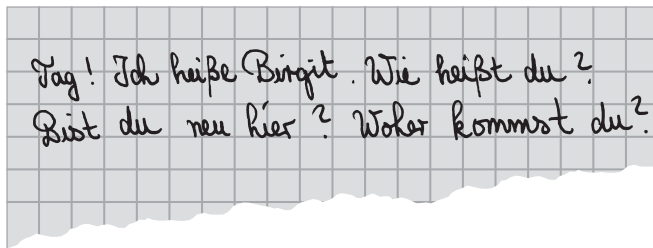 Tag! Ich heiße Birgit. Wie heißt du?
Bist du neu hier? Woher kommst du?